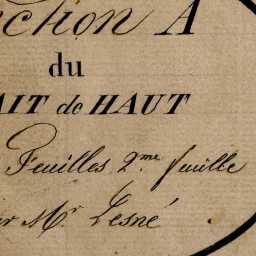 ction A
du
AIT de HAUT
Feuilles 2.me feuille
r Mr Lesné